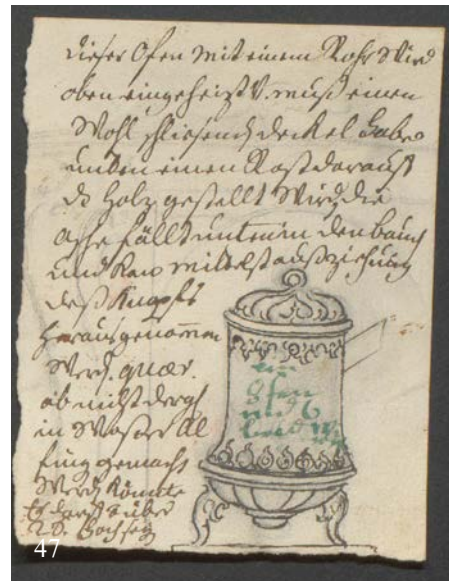 dieser Ofen mit einem Rohr wird
oben eingeheizt V. muß einen
Wohl schliesend deckel haben
unden einen Rost darauf
ds Holz gestellt wird, die
asche fällt unten in den bauch
und kan mittelst außziehung
deß Knopfs
herausgenommen
werd. quær.
ob nicht dergl
in Wasser Al
fing gemacht
werd könnte
Er darf über
2 S. hoch sey
ein
Ofen
47